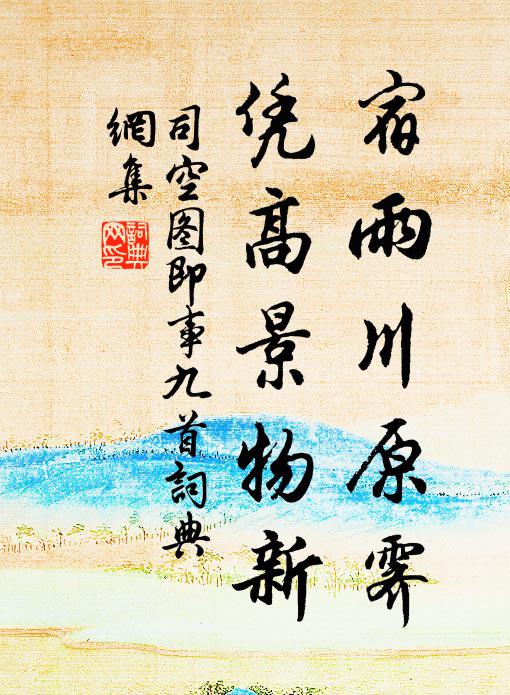 宿雨川原霽
凭高景物新
司空图即事九首詞典
網集
詞典网印